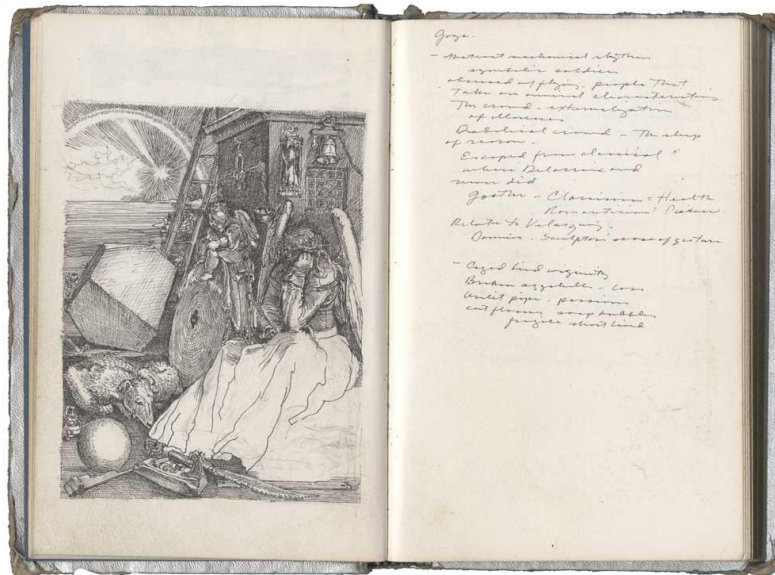 Goya.
- Abstract mechanical rhythm
symbolic soldiers
obsessed w/ flying, people that
take on animal characteristics
The crowd - externalization
of illnesses
Diabolical crowd - The sleep
of reason.
Escaped from classical
where Delacroix and
never did
Goethe - Classicism = Health
Romanticism =
Relate to Velasquez.
Daumier. Sculptors sense of gesture
- Caged bird virginity
Broken eggshells - loss
Unlit pipe - passions
cut flowers, soap bubbles
fragile short lived